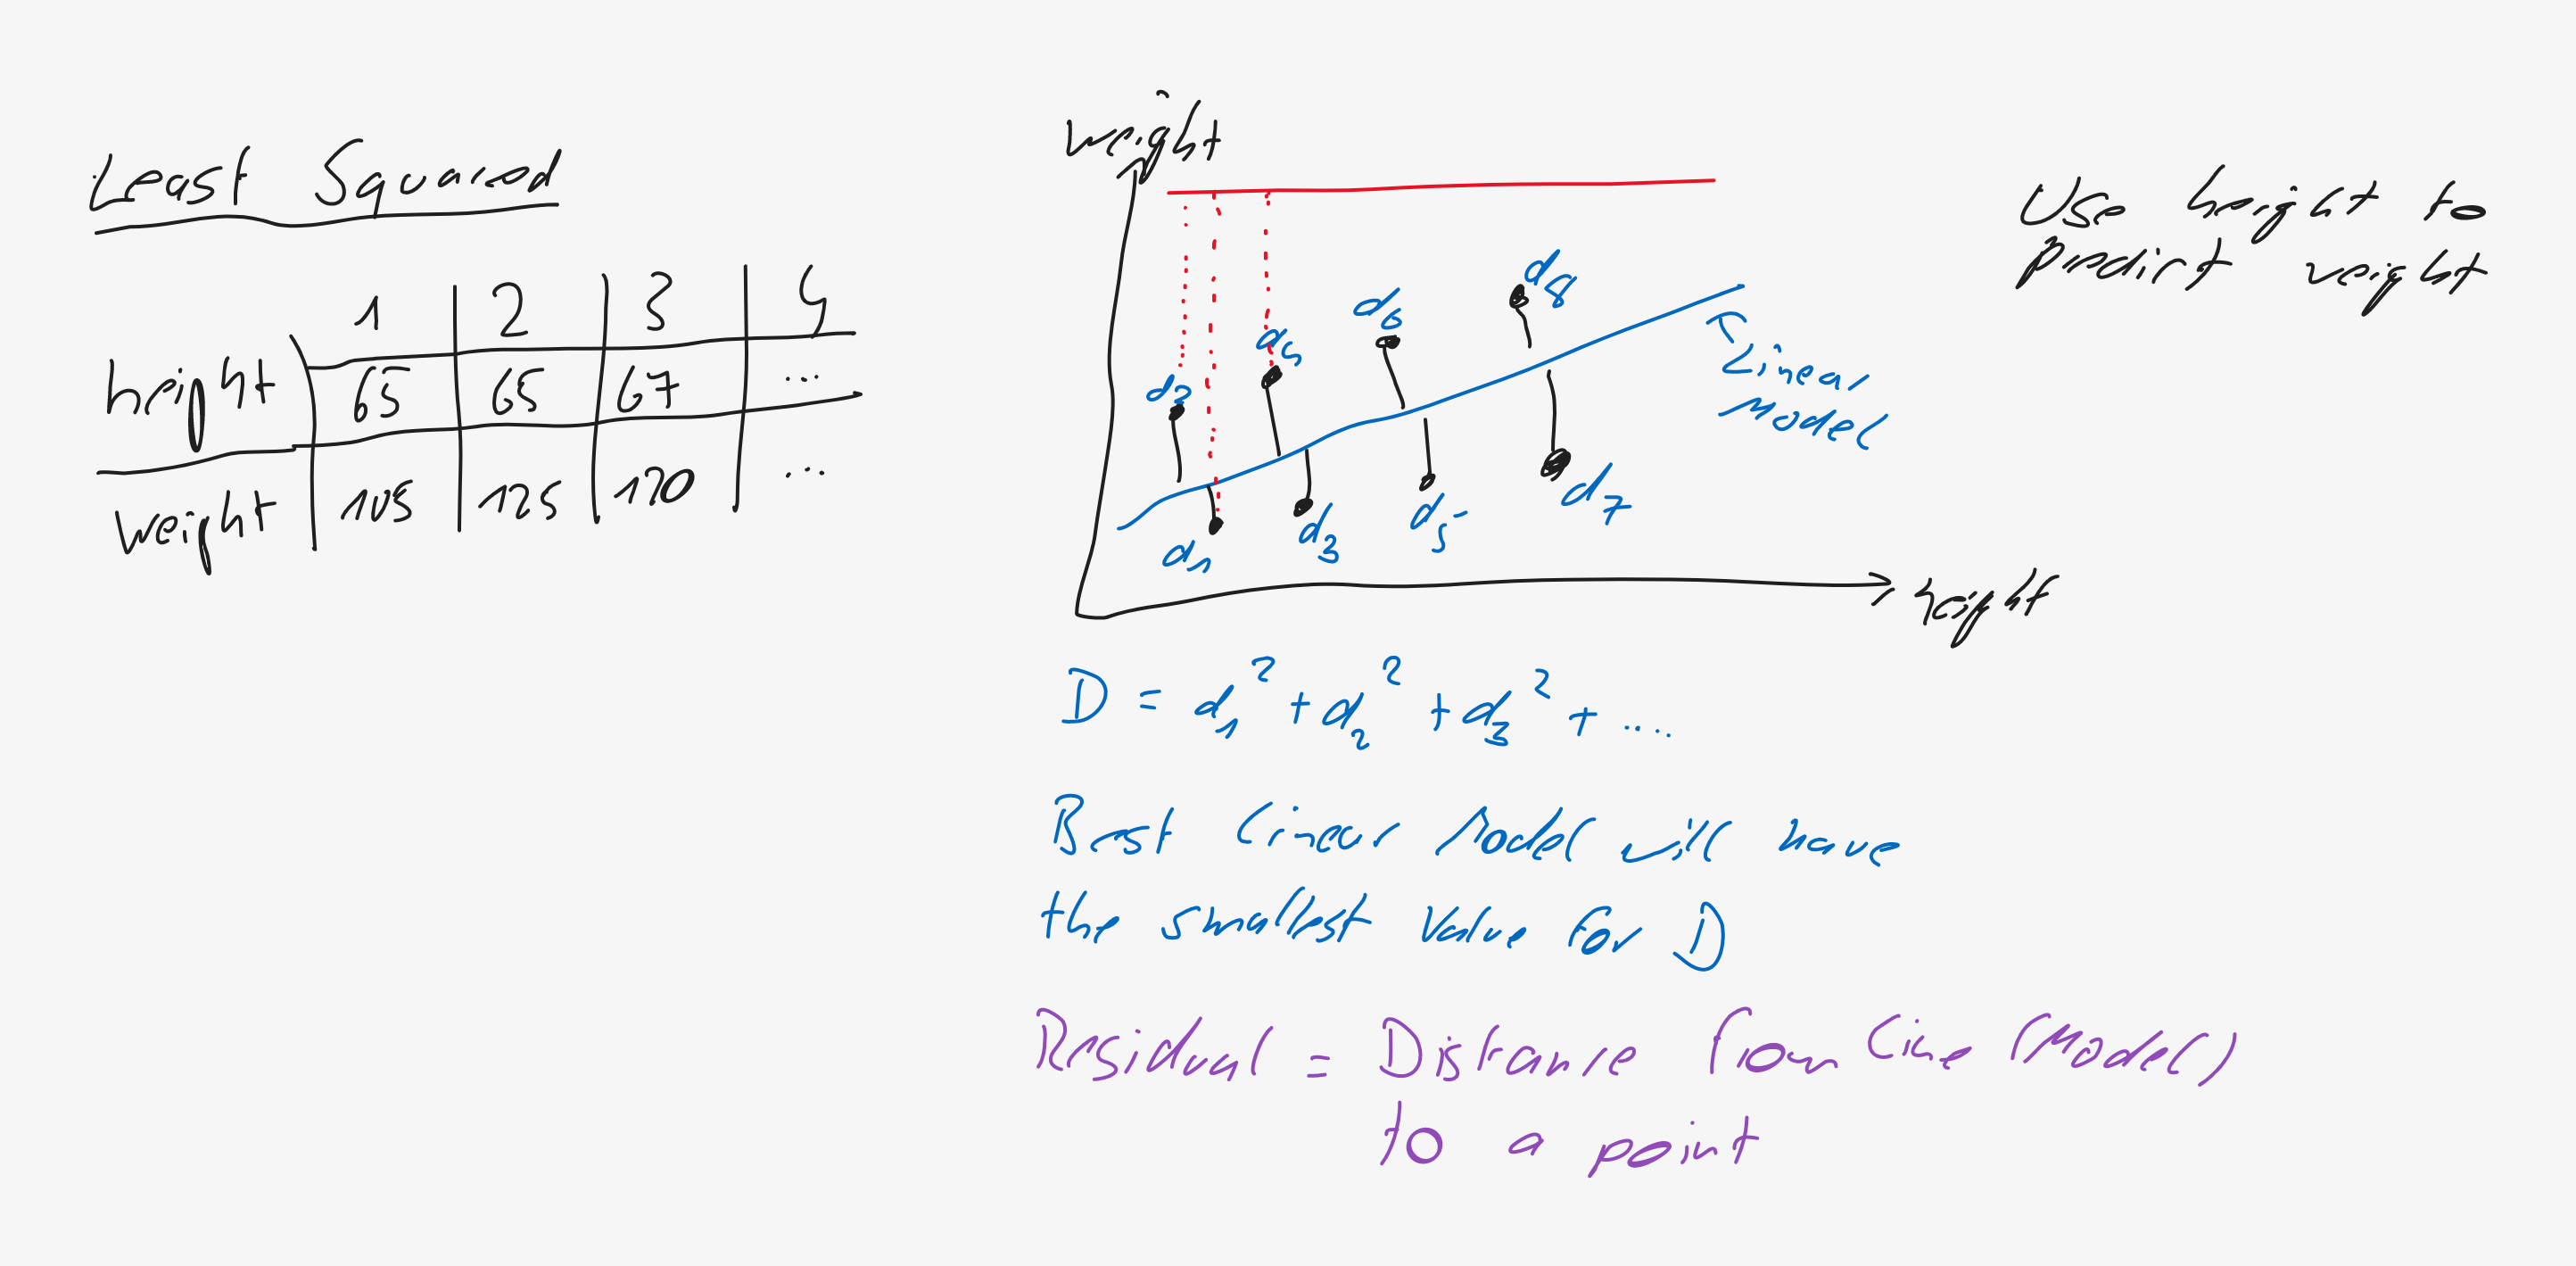 Least Squared
1 2 3 4
height 65 65 67 ...
weight 105 125 120 ...
weight
Use height to
predict weight
d8
d6
d4
d2
Linear
Model
d1
d3
d5
d7
height
D = d1² + d2² + d3² + ....
Best Linear Model will have
the smallest Value for D
Residual = Distance from Line (Model)
to a point